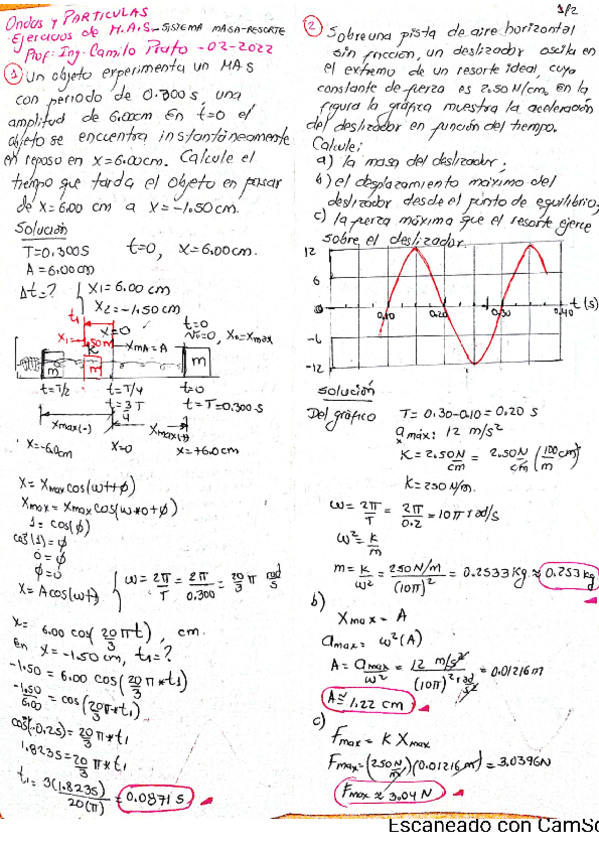 Ondas y PARTICULAS
Ejercicios de M.A.S - SISTEMA MASA-RESORTE
Prof: Ing. Camilo Prato - 02-2022
① Un objeto experimenta un MAS
con periodo de 0.300s, una
amplitud de 6.00cm En t=0 el
objeto se encuentra instantáneamente
en reposo en x=6.00cm. Calcule el
tiempo que tarda el objeto en pasar
de x=6.00 cm a x=-1.50cm.
Solución
T=0.300S t=0, x=6.00cm.
A=6.00cm
Δt=? x1=6.00 cm
x2=-1.50 cm
t1 t=0
x=0 v=0, x0=xmax
xmax=A
m m m
t=T/2 t=T/4 t=0
t=3T/4 t=T=0.300s
xmax(-) xmax(+)
x=-6.0cm x=0 x=+6.0cm
x=xmax cos(ωt+φ)
xmax=xmax cos(ω*0+φ)
1=cos(φ)
cos⁻¹(1)=φ
0=φ
φ=0
x=Acos(ωt) ω=2π/T=2π/0.300=20/3 π rad/s
x=6.00 cos(20/3 πt), cm.
en x=-1.50cm, t1=?
-1.50=6.00 cos(20/3 π*t1)
-1.50/6.00=cos(20/3 π*t1)
cos⁻¹(-0.25)=20/3 π*t1
1.8235=20/3 π*t1
t1=3(1.8235)/20(π)=0.0871 S
1/2
② Sobre una pista de aire horizontal
sin fricción, un deslizador oscila en
el extremo de un resorte ideal, cuya
constante de fuerza es 2.50 N/cm, en la
figura la gráfica muestra la aceleración
del deslizador en función del tiempo.
Calcule:
a) la masa del deslizador;
b) el desplazamiento máximo del
deslizador desde el punto de equilibrio;
c) la fuerza máxima que el resorte ejerce
sobre el deslizador.
12
6
0 0.10 0.20 0.30 0.40 t(s)
-6
-12
Solución
Del gráfico T=0.30-0.10=0.20 s
a máx: 12 m/s²
K=2.50 N/cm = 2.50 N/cm (100cm/m)
K=250 N/m.
ω=2π/T=2π/0.2=10π rad/s
ω²=K/m
m=K/ω²=250 N/m/(10π)²=0.2533 Kg ≈ 0.253 kg
b)
Xmax=A
amax=ω²(A)
A=amax/ω²=12 m/s²/(10π)² rad/s²=0.01216m
A≅1.22 cm
c)
Fmax=K Xmax
Fmax=(250 N/m)(0.01216 m)=3.0396N
Fmax≈3.04 N
Escaneado con CamSc